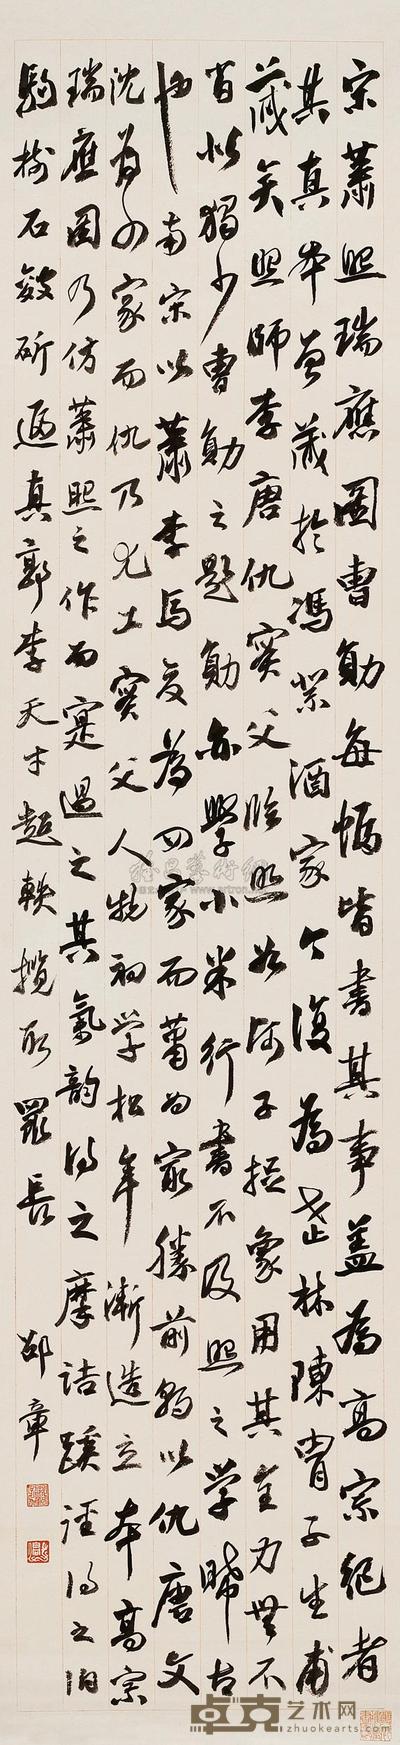 宋蕭照瑞應圖曹勛每幅皆書其事蓋為高宗紀者
其真本曾藏於馮業酒家今復為武林陳胄子生甫
藏矣照師李唐仇實父臨照如獅子捉象用其全力無不
肖似獨少曹勛之題勛亦學小米行書不及照之學晞古
也南宋以蕭李馬夏為四家而蕭為最勝前朝以仇唐文
沈為四家而仇乃尤工實父人物初學松年漸造立本高宗
瑞應圖乃仿蕭照之作而寔過之其氣韻得之摩詰蹊徑得之伯
駒樹石皴斫逼真郭李天才超軼攬取眾長
邵章
卓克艺术网
zhuokearts.com